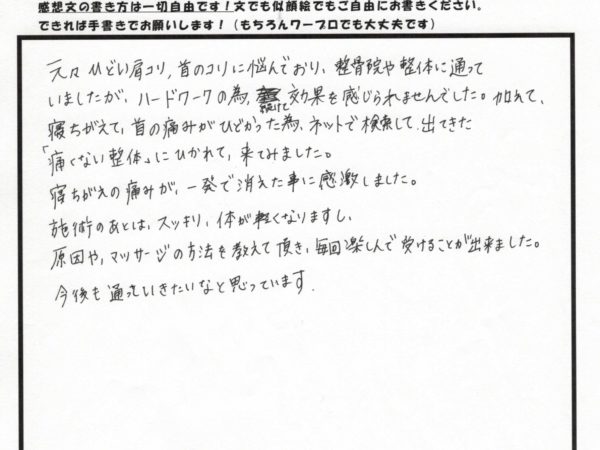 感想文の書き方は一切自由です！文でも似顔絵でもご自由にお書きください。
できれば手書きでお願いします！（もちろんワープロでも大丈夫です）
元々ひどい肩コリ，首のコリに悩んでおり，整骨院や整体に通って
いましたが，ハードワークの為，続けて効果を感じられませんでした。加えて，
寝ちがえて，首の痛みがひどかった為，ネットで検索して，出てきた
「痛くない整体」にひかれて，来てみました。
寝ちがえの痛みが，一発で消えた事に感激しました。
施術のあとは，スッキリ，体が軽くなりますし，
原因や，マッサージの方法を教えて頂き，毎回楽しんで受けることが出来ました。
今後も通っていきたいなと思っています．